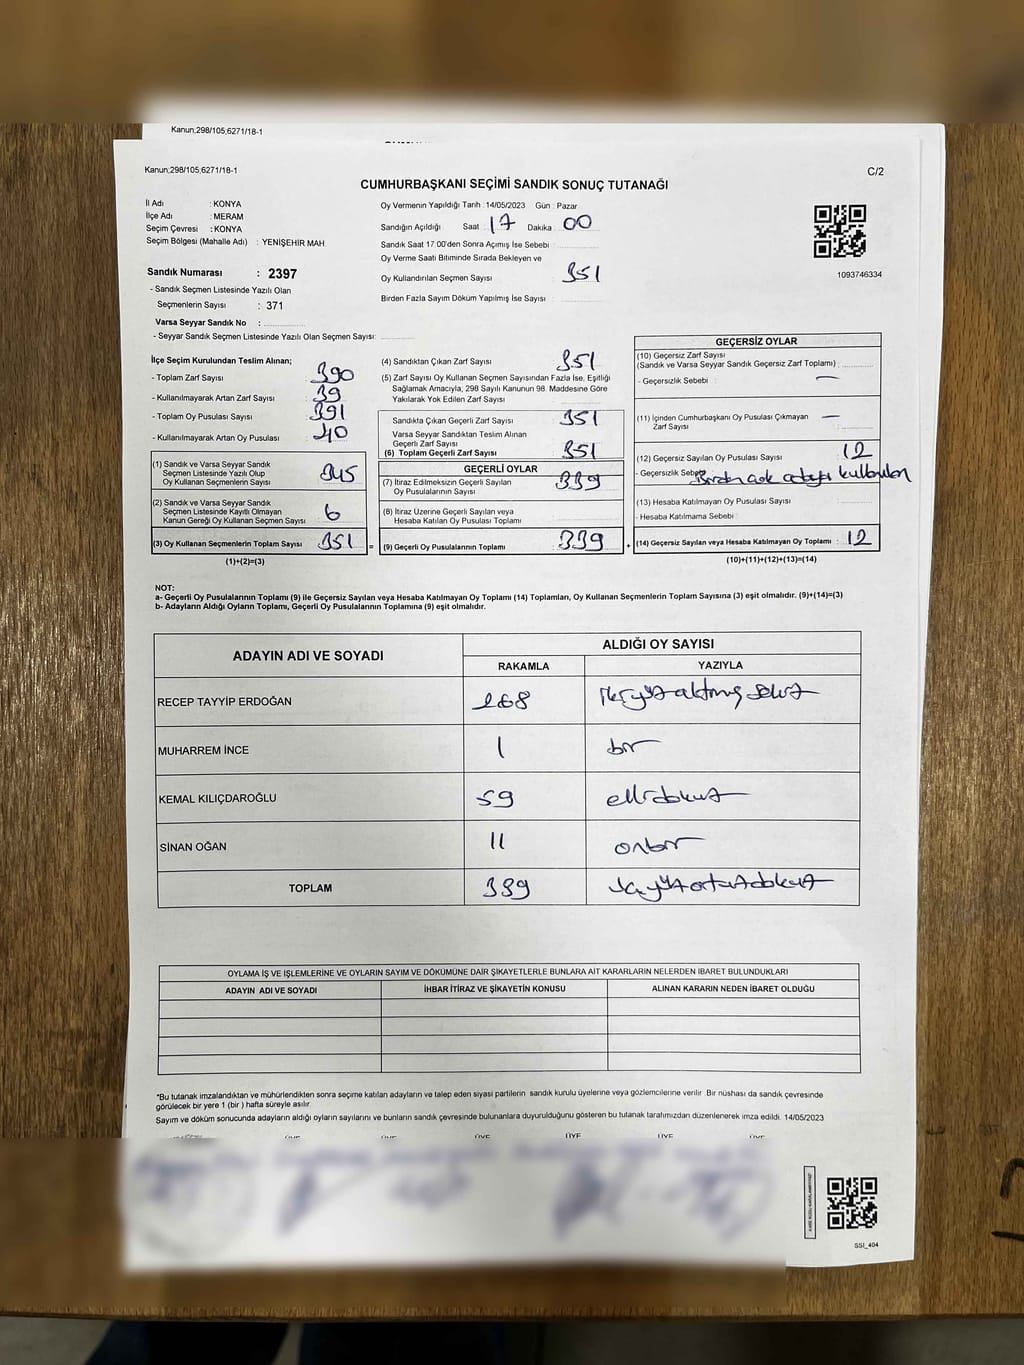 Kanun;298/105;6271/18-1
Kanun;298/105;6271/18-1
C/2
CUMHURBAŞKANI SEÇİMİ SANDIK SONUÇ TUTANAĞI
İl Adı : KONYA
İlçe Adı : MERAM
Seçim Çevresi : KONYA
Seçim Bölgesi (Mahalle Adı) : YENİŞEHİR MAH
Sandık Numarası : 2397
- Sandık Seçmen Listesinde Yazılı Olan
Seçmenlerin Sayısı : 371
Varsa Seyyar Sandık No :
- Seyyar Sandık Seçmen Listesinde Yazılı Olan Seçmen Sayısı:
Oy Vermenin Yapıldığı Tarih : 14/05/2023 Gün : Pazar
Sandığın Açıldığı Saat : 17 Dakika : 00
Sandık Saat 17.00'den Sonra Açımış İse Sebebi :
Oy Verme Saati Bitiminde Sırada Bekleyen ve
Oy Kullandırılan Seçmen Sayısı : 351
Birden Fazla Sayım Döküm Yapılmış İse Sayısı :
1093746334
İlçe Seçim Kurulundan Teslim Alınan;
- Toplam Zarf Sayısı : 390
- Kullanılmayarak Artan Zarf Sayısı : 39
- Toplam Oy Pusulası Sayısı : 391
- Kullanılmayarak Artan Oy Pusulası : 40
(1) Sandık ve Varsa Seyyar Sandık
Seçmen Listesinde Yazılı Olup
Oy Kullanan Seçmenlerin Sayısı : 345
(2) Sandık ve Varsa Seyyar Sandık
Seçmen Listesinde Kayıtlı Olmayan
Kanun Gereği Oy Kullanan Seçmen Sayısı : 6
(3) Oy Kullanan Seçmenlerin Toplam Sayısı : 351 =
(1)+(2)=(3)
(4) Sandıktan Çıkan Zarf Sayısı : 351
(5) Zarf Sayısı Oy Kullanan Seçmen Sayısından Fazla İse, Eşitliği
Sağlamak Amacıyla, 298 Sayılı Kanunun 98. Maddesine Göre
Yakılarak Yok Edilen Zarf Sayısı :
Sandıkta Çıkan Geçerli Zarf Sayısı : 351
Varsa Seyyar Sandıktan Teslim Alınan
Geçerli Zarf Sayısı :
(6) Toplam Geçerli Zarf Sayısı : 351
GEÇERLİ OYLAR
(7) İtiraz Edilmeksizin Geçerli Sayılan
Oy Pusulalarının Sayısı : 339
(8) İtiraz Üzerine Geçerli Sayılan veya
Hesaba Katılan Oy Pusulası Toplamı :
(9) Geçerli Oy Pusulalarının Toplamı : 339 +
GEÇERSİZ OYLAR
(10) Geçersiz Zarf Sayısı
(Sandık ve Varsa Seyyar Sandık Geçersiz Zarf Toplamı) :
- Geçersizlik Sebebi : —
(11) İçinden Cumhurbaşkanı Oy Pusulası Çıkmayan
Zarf Sayısı : —
(12) Geçersiz Sayılan Oy Pusulası Sayısı : 12
- Geçersizlik Sebebi
(13) Hesaba Katılmayan Oy Pusulası Sayısı :
- Hesaba Katılmama Sebebi :
(14) Geçersiz Sayılan veya Hesaba Katılmayan Oy Toplamı : 12
(10)+(11)+(12)+(13)=(14)
NOT:
a- Geçerli Oy Pusulalarının Toplamı (9) ile Geçersiz Sayılan veya Hesaba Katılmayan Oy Toplamı (14) Toplamları, Oy Kullanan Seçmenlerin Toplam Sayısına (3) eşit olmalıdır. (9)+(14)=(3)
b- Adayların Aldığı Oyların Toplamı, Geçerli Oy Pusulalarının Toplamına (9) eşit olmalıdır.
ADAYIN ADI VE SOYADI ALDIĞI OY SAYISI
RAKAMLA YAZIYLA
RECEP TAYYİP ERDOĞAN 268 ikiyüzaltmış sekiz
MUHARREM İNCE 1 bir
KEMAL KILIÇDAROĞLU 59 ellidokuz
SİNAN OĞAN 11 onbir
TOPLAM 339 üçyüzotuzdokuz
OYLAMA İŞ VE İŞLEMLERİNE VE OYLARIN SAYIM VE DÖKÜMÜNE DAİR ŞİKAYETLERLE BUNLARA AİT KARARLARIN NELERDEN İBARET BULUNDUKLARI
ADAYIN ADI VE SOYADI İHBAR İTİRAZ VE ŞİKAYETİN KONUSU ALINAN KARARIN NEDEN İBARET OLDUĞU
*Bu tutanak imzalandıktan ve mühürlendikten sonra seçime katılan adayların ve talep eden siyasi partilerin sandık kurulu üyelerine veya gözlemcilerine verilir Bir nüshası da sandık çevresinde
görülecek bir yere 1 (bir ) hafta süreyle asılır.
Sayım ve döküm sonucunda adayların aldığı oyların sayılarını ve bunların sandık çevresinde bulunanlara duyurulduğunu gösteren bu tutanak tarafımızdan düzenlenerek imza edildi. 14/05/2023
ÜYE ÜYE ÜYE ÜYE ÜYE ÜYE
SSİ_404